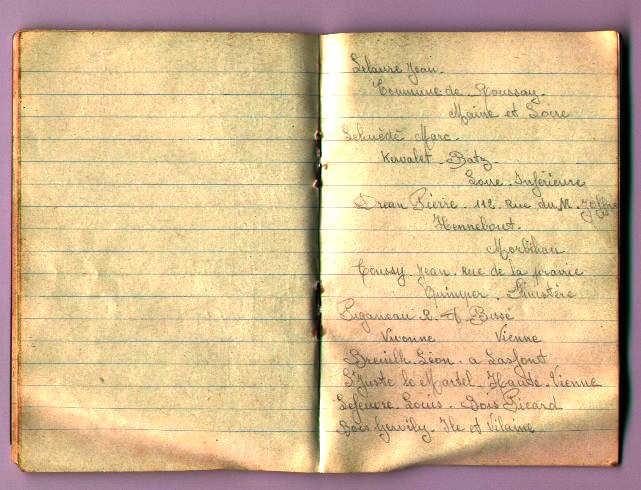 Lelaure Jean.
Commune de Roussay.
Maine et Loire
Lehuédé Marc.
Kavalet - Batz.
Loire Inférieure
Dréan Pierre. 112 Rue du M. Joffre
Hennebout.
Morbihan
Coussy Jean. Rue de la prairie
Quimper. Finistère
Biganeau
Vivonne Vienne
Breuilh Léon. a Lasfont
St Juste le Martel - Haute Vienne
Lefeuvre Louis. Bois Picard
Bois Gervily - Ile et Vilaine